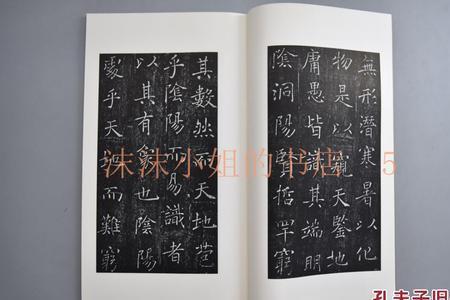 無形潛寒暑以化
物是以窺天鑒地
庸愚皆識其端明
陰洞陽賢哲罕窮
其數然而天地苞
乎陰陽而易識者
以其有象也陰陽
處乎天地而難窮
沫沫小姐的书店 5
孔夫子旧